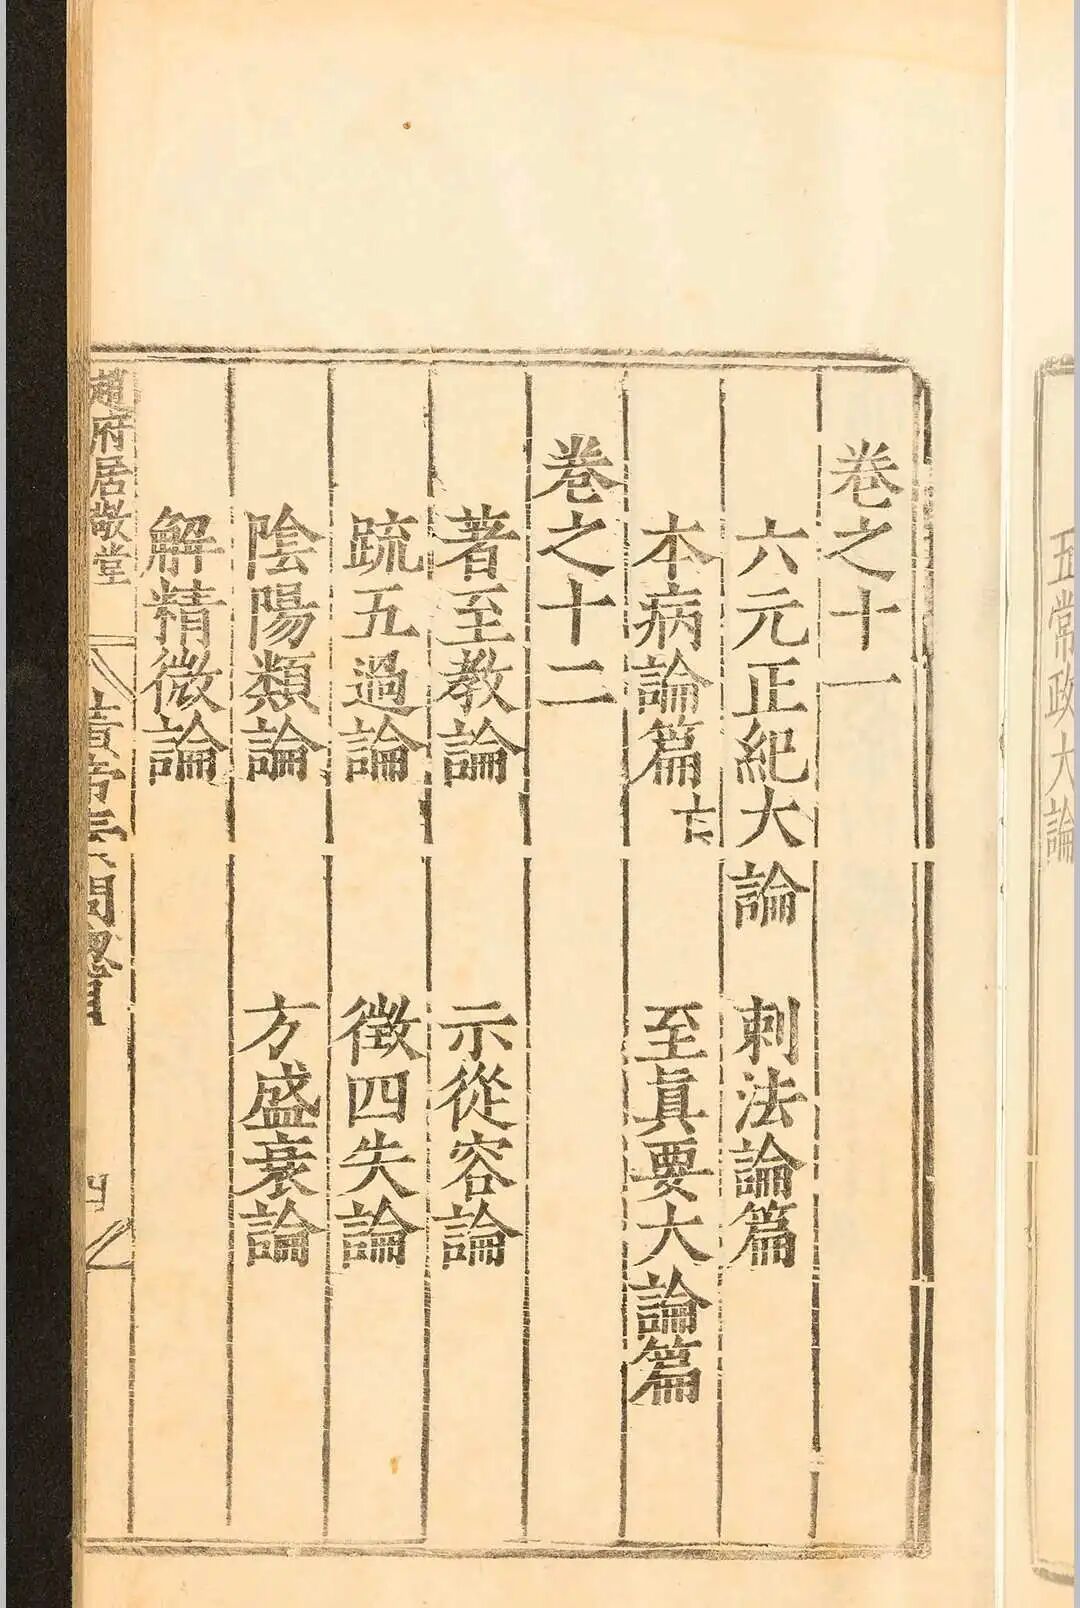 五常政大論
卷之十一
六元正紀大論　刺法論篇
本病論篇亡　至眞要大論篇
卷之十二
著至教論　示從容論
疏五過論　徵四失論
陰陽類論　方盛衰論
解精微論
趙府居敬堂　黃帝素問總目　四